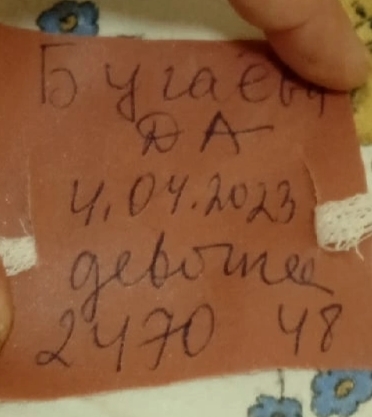 Бугаева
ДА
4.04.2023
девочка
2470 48